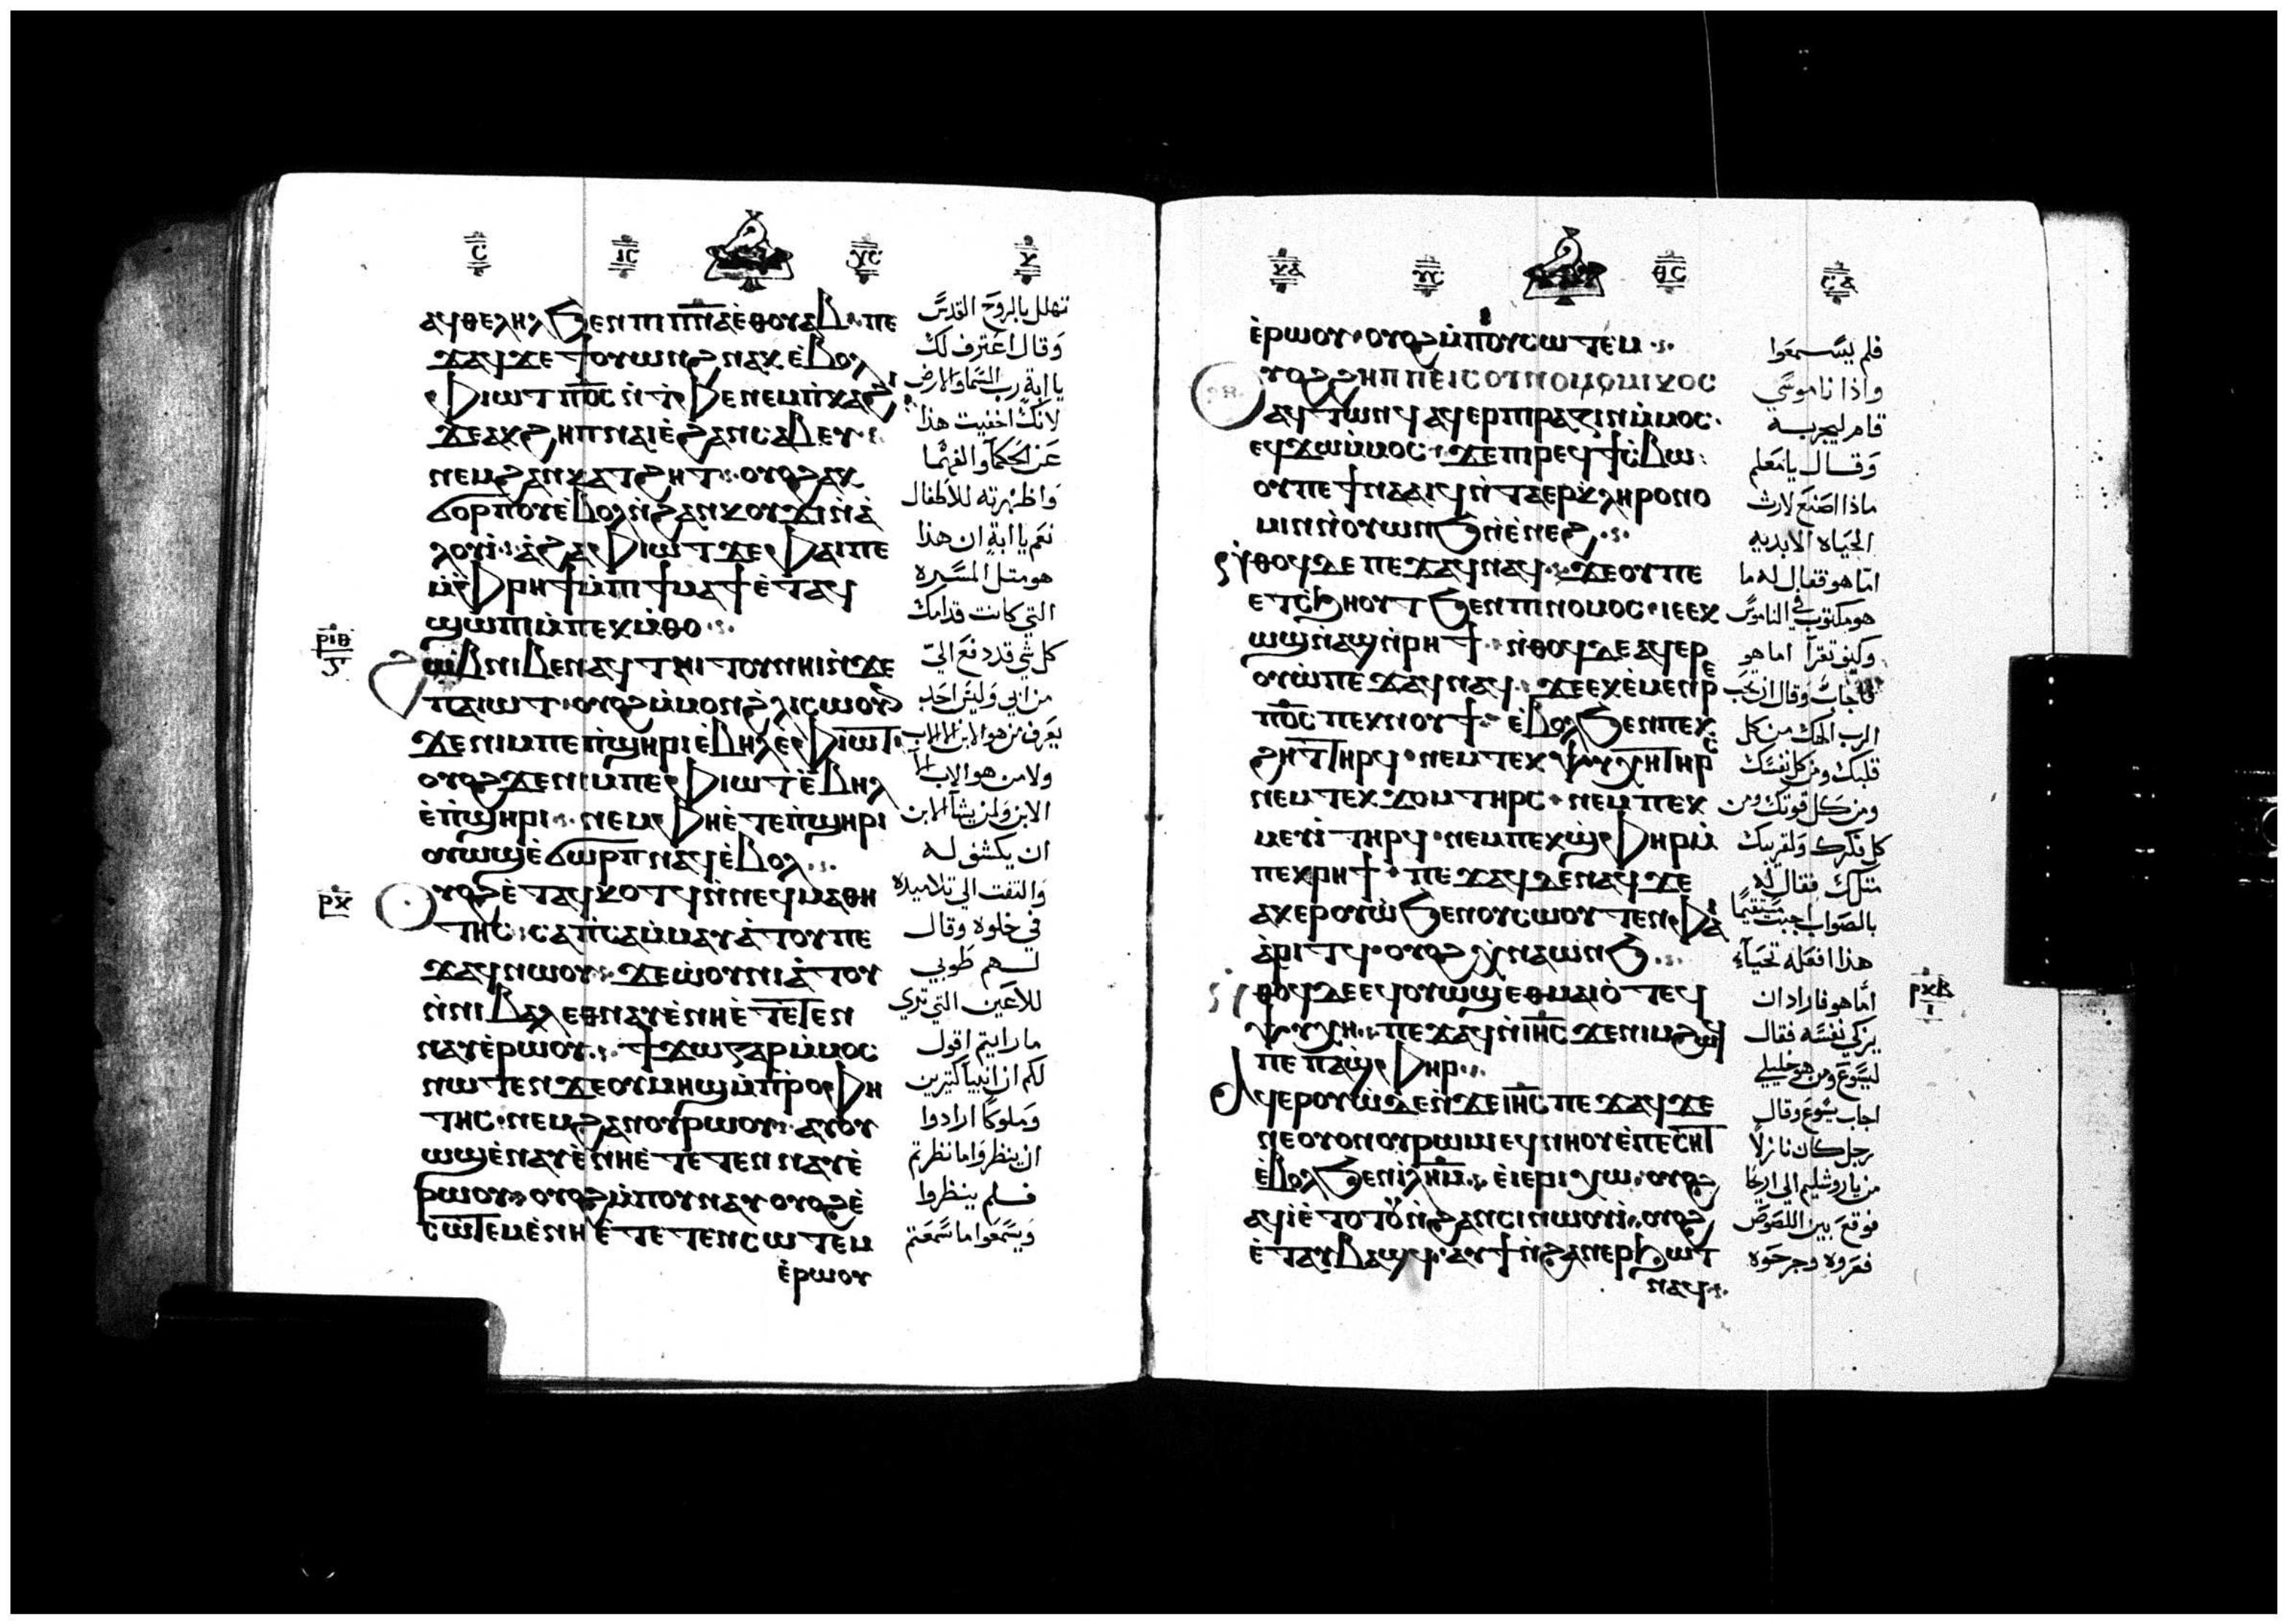 ⲁϥⲑⲉⲗⲏⲗ ϧⲉⲛ ⲡⲓⲡⲛⲁ ⲉⲑⲟⲩⲁⲃ ⲡⲉ
ϫⲁϥ ϫⲉ ϯⲟⲩⲱⲛϩ ⲛⲁⲕ ⲉⲃⲟⲗ
ⲫⲓⲱⲧ ⲡ⳪ ⲛⲧⲫⲉ ⲛⲉⲙ ⲡⲕⲁϩⲓ
ϫⲉ ⲁⲕϩⲏⲡ ⲛⲁⲓ ⲉϩⲁⲛⲥⲁⲃⲉⲩ
ⲛⲉⲙ ϩⲁⲛⲕⲁⲧϩⲏⲧ ⲟⲩⲟϩ ⲁⲕ
ϭⲟⲣⲡⲟⲩ ⲉⲃⲟⲗ ⲛϩⲁⲛⲕⲟⲩϫⲓ ⲛⲁ
ⲗⲱⲟⲩⲓ ⲁϩⲁ ⲫⲓⲱⲧ ϫⲉ ⲫⲁⲓ ⲡⲉ
ⲙⲫⲣⲏϯ ⲙⲡⲓϯⲙⲁϯ ⲉⲧⲁϥ
ϣⲱⲡⲓ ⲙⲡⲉⲕⲙⲑⲟ
ⲣⲓⲑ
ϩⲱⲃ ⲛⲓⲃⲉⲛ ⲁϥⲧⲏⲓⲧⲟⲩ ⲛⲏⲓ ⲛϫⲉ
ⲡⲁⲓⲱⲧ ⲟⲩⲟϩ ⲙⲙⲟⲛ ϩⲗⲓ ⲥⲱⲟⲩⲛ
ϫⲉ ⲛⲓⲙ ⲡⲉ ⲡϣⲏⲣⲓ ⲉⲃⲏⲗ ⲉⲫⲓⲱⲧ
ⲟⲩⲟϩ ϫⲉ ⲛⲓⲙ ⲡⲉ ⲫⲓⲱⲧ ⲉⲃⲏⲗ
ⲉⲡϣⲏⲣⲓ ⲛⲉⲙ ⲫⲏ ⲉⲧⲉ ⲡϣⲏⲣⲓ
ⲟⲩⲱϣ ⲉϭⲱⲣⲡ ⲛⲁϥ ⲉⲃⲟⲗ
ⲣⲕ
ⲟⲩⲟϩ ⲉⲧⲁϥⲕⲟⲧϥ ⲛⲛⲉϥⲙⲁⲑⲏ
ⲧⲏⲥ ⲥⲁⲡⲥⲁ ⲙⲙⲁⲩⲁⲧⲟⲩ ⲡⲉ
ϫⲁϥ ⲛⲱⲟⲩ ϫⲉ ⲱⲟⲩⲛⲓⲁⲧⲟⲩ
ⲛⲛⲓⲃⲁⲗ ⲉⲑⲛⲁⲩ ⲉⲛⲏ ⲉⲧⲉⲧⲉⲛ
ⲛⲁⲩ ⲉⲣⲱⲟⲩ ϯϫⲱ ⲅⲁⲣ ⲙⲙⲟⲥ
ⲛⲱⲧⲉⲛ ϫⲉ ⲟⲩⲙⲏϣ ⲙⲡⲣⲟⲫⲏ
ⲧⲏⲥ ⲛⲉⲙ ϩⲁⲛⲟⲩⲣⲱⲟⲩ ⲁⲩⲟⲩ
ⲱϣ ⲉⲛⲁⲩ ⲉⲛⲏ ⲉⲧⲉⲧⲉⲛⲛⲁⲩ ⲉ
ⲣⲱⲟⲩ ⲟⲩⲟϩ ⲙⲡⲟⲩⲛⲁⲩ ⲟⲩⲟϩ ⲉ
ⲥⲱⲧⲉⲙ ⲉⲛⲏ ⲉⲧⲉⲧⲉⲛⲥⲱⲧⲉⲙ
ⲉⲣⲱⲟⲩ
تهلل بالروح القدس
وقال اعترف لك
يا ابة رب السما والارض
لانك اخفيت هذا
عن الحكما والفهما
واظهرته للاطفال
نعم يا ابة ان هذا
هو مثل المسره
التي كانت قدامك
كل شي قد دفع الي
من ابي وليس احد
يعرف من هو الابن الا الاب
ولا من هو الاب الا
الابن ولمن يشا الابن
ان يكشف له
والتفت الي تلاميذه
في خلوة وقال
لهم طوبي
للاعين التي تري
ما رايتم اقول
لكم ان انبيا كثيرين
وملوكا ارادوا
ان ينظروا ما نظرتم
فلم ينظروا
ويسمعوا ما سمعتم
ⲉⲣⲱⲟⲩ ⲟⲩⲟϩ ⲙⲡⲟⲩⲥⲱⲧⲉⲙ
ⲟⲩⲟϩ ϩⲏⲡⲡⲉ ⲓⲥ ⲟⲩⲛⲟⲙⲓⲕⲟⲥ
ⲁϥⲧⲱⲛϥ ⲁϥⲉⲣⲡⲓⲣⲁⲍⲓⲛ ⲙⲙⲟϥ
ⲉϥϫⲱ ⲙⲙⲟⲥ ϫⲉ ⲡⲓⲣⲉϥϯⲥⲃⲱ
ⲟⲩ ⲡⲉ ϯⲛⲁⲁⲓϥ ⲛⲧⲁⲉⲣⲕⲗⲏⲣⲟⲛⲟ
ⲙⲓⲛ ⲛⲟⲩⲱⲛϧ ⲛⲉⲛⲉϩ
ⲛⲑⲟϥ ⲇⲉ ⲡⲉϫⲁϥ ⲛⲁϥ ϫⲉ ⲟⲩ ⲡⲉ
ⲉⲧⲥϧⲏⲟⲩⲧ ϧⲉⲛ ⲡⲓⲛⲟⲙⲟⲥ ⲓⲉ ⲉⲕ
ⲱϣ ⲛⲁϣ ⲛⲣⲏϯ ⲛⲑⲟϥ ⲇⲉ ⲁϥⲉⲣ
ⲟⲩⲱ ⲡⲉϫⲁϥ ⲛⲁϥ ϫⲉ ⲉⲕⲉⲙⲉⲛⲣⲉ
ⲡ⳪ ⲡⲉⲕⲛⲟⲩϯ ⲉⲃⲟⲗ ϧⲉⲛ ⲡⲉⲕ
ϩⲏⲧ ⲧⲏⲣϥ ⲛⲉⲙ ⲧⲉⲕⲯⲩⲭⲏ ⲧⲏⲣⲥ
ⲛⲉⲙ ⲧⲉⲕϫⲟⲙ ⲧⲏⲣⲥ ⲛⲉⲙ ⲡⲉⲕ
ⲙⲉⲩⲓ ⲧⲏⲣϥ ⲛⲉⲙ ⲡⲉⲕϣⲫⲏⲣ ⲙ
ⲡⲉⲕⲣⲏϯ ⲡⲉϫⲁϥ ⲇⲉ ⲛⲁϥ ϫⲉ
ⲁⲕⲉⲣⲟⲩⲱ ϧⲉⲛ ⲟⲩⲥⲱⲟⲩⲧⲉⲛ ⲫⲁⲓ
ⲁⲣⲓⲧϥ ⲟⲩⲟϩ ⲭⲛⲁⲱⲛϧ
ⲛⲑⲟϥ ⲇⲉ ⲉϥⲟⲩⲱϣ ⲉⲑⲙⲁⲓⲟ ⲧⲉϥ
ⲯⲩⲭⲏ ⲡⲉϫⲁϥ ⲛⲓⲏⲥ ϫⲉ ⲛⲓⲙ ϩⲱϥ
ⲡⲉ ⲡⲁϣⲫⲏⲣ
ⲁϥⲉⲣⲟⲩⲱ ⲇⲉ ⲛϫⲉ ⲓⲏⲥ ⲡⲉϫⲁϥ ϫⲉ
ⲛⲉ ⲟⲩⲟⲛ ⲟⲩⲣⲱⲙⲓ ⲉϥⲛⲏⲟⲩ ⲉⲡⲉⲥⲏⲧ
ⲉⲃⲟⲗ ϧⲉⲛ ⲓⲗⲏⲙ ⲉⲓⲉⲣⲓⲭⲱ ⲟⲩⲟϩ
ⲁϥⲓ ⲉⲧⲟⲧⲟⲩ ⲛϩⲁⲛⲥⲓⲛⲱⲟⲩⲓ ⲟⲩⲟϩ
ⲉⲧⲁⲩⲃⲁϣϥ ⲁⲩϯ ⲛϩⲁⲛⲉⲣϧⲱⲧ
ⲛⲁϥ
فلم يسمعوا
واذا ناموسي
قام ليجربه
وقال يا معلم
ماذا اصنع لارث
الحياه الابديه
اما هو فقال له ما
هو مكتوب في الناموس
وكيف تقرآ اما هو
فاجاب وقال ان تحب
الرب الهك من كل
قلبك ومن كل نفسك
ومن كل قوتك ومن
كل فكرك ولقريبك
مثلك فقال له
بالصواب اجبت مستقيما
هذا افعله تحيآ
اما هو فاراد ان
يزكي نفسه فقال
ليسوع ومن هو خليلي
اجاب يسوع وقال
رجل كان نازلا
من ياروشليم الي اريحا
فوقع بين اللصوص
فعروه وجرحوه
ⲣⲕⲃ